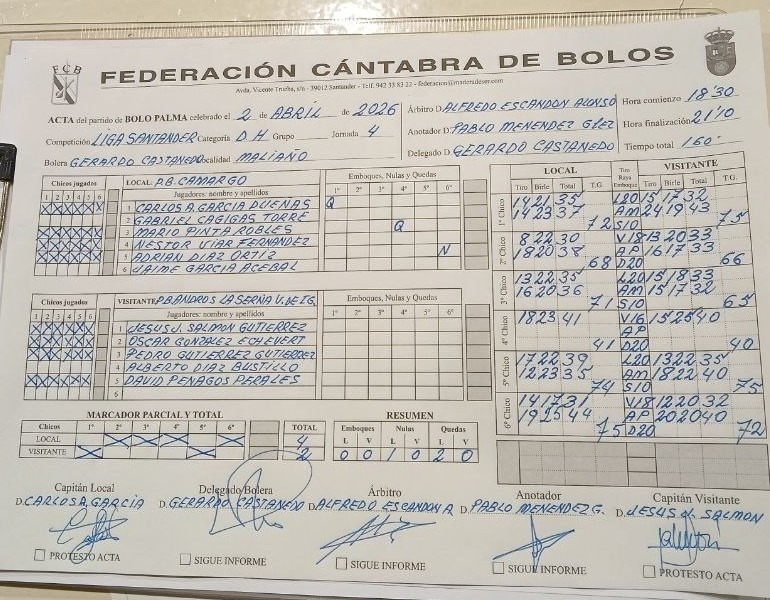 FCB
FEDERACIÓN CÁNTABRA DE BOLOS
Avda. Vicente Trueba, s/n - 39012 Santander - Telf. 942 33 83 22 - federacion@maderadeser.com
ACTA del partido de BOLO PALMA celebrado el 2 de ABRIL de 2026
Competición LIGA SANTANDER Categoría D.H Grupo Jornada 4
Bolera GERARDO CASTANEDO Localidad MALIAÑO
Árbitro D. ALFREDO ESCANDON ALONSO
Anotador D. PABLO MENENDEZ GLEZ
Delegado D. GERARDO CASTANEDO
Hora comienzo 18'30
Hora finalización 21'10
Tiempo total 160'
Chicos jugados
1 2 3 4 5 6
LOCAL: P.B. CAMARGO
Jugadores: nombre y apellidos
Emboques, Nulas y Quedas
1º 2º 3º 4º 5º 6º
1 CARLOS A. GARCIA DUEÑAS Q
2 GABRIEL CAGIGAS TORRE
3 MARIO PINTA ROBLES Q
4 NESTOR VIAR FERNANDEZ
5 ADRIAN DIAZ ORTIZ N
6 JAIME GARCIA ACEBAL
Chicos jugados
1 2 3 4 5 6
VISITANTE: P.B ANDROS LA SERNA V. DE IG.
Jugadores: nombre y apellidos
Emboques, Nulas y Quedas
1º 2º 3º 4º 5º 6º
1 JESUS J. SALMON GUTIERREZ
2 OSCAR GONZALEZ ECHEVERT
3 PEDRO GUTIERREZ GUTIERREZ
4 ALBERTO DIAZ BUSTILLO
5 DAVID PENAGOS PERALES
LOCAL VISITANTE
Tiro Birle Total T.G. Tiro Raya Emboque Tiro Birle Total T.G.
1º Chico 14 21 35 L20 15 17 32
14 23 37 AM 24 19 43
72 S10 75
2º Chico 8 22 30 V18 13 20 33
18 20 38 AP 16 17 33
68 D20 66
3º Chico 13 22 35 L20 15 18 33
16 20 36 AM 15 17 32
71 S10 65
4º Chico 18 23 41 V16 15 25 40
AP
41 D20 40
5º Chico 17 22 39 L20 13 22 35
12 23 35 AM 18 22 40
74 S10 75
6º Chico 14 17 31 V18 12 20 32
19 25 44 AP 20 20 40
75 D20 72
MARCADOR PARCIAL Y TOTAL
Chicos 1º 2º 3º 4º 5º 6º TOTAL
LOCAL X X X X 4
VISITANTE X X 2
RESUMEN
Emboques Nulas Quedas
L V L V L V
0 0 1 0 2 0
Capitán Local Delegado Bolera Árbitro Anotador Capitán Visitante
D. CARLOS A. GARCIA D. GERARDO CASTANEDO D. ALFREDO ESCANDON A. D. PABLO MENENDEZ G. D. JESUS J. SALMON
PROTESTO ACTA SIGUE INFORME SIGUE INFORME SIGUE INFORME PROTESTO ACTA